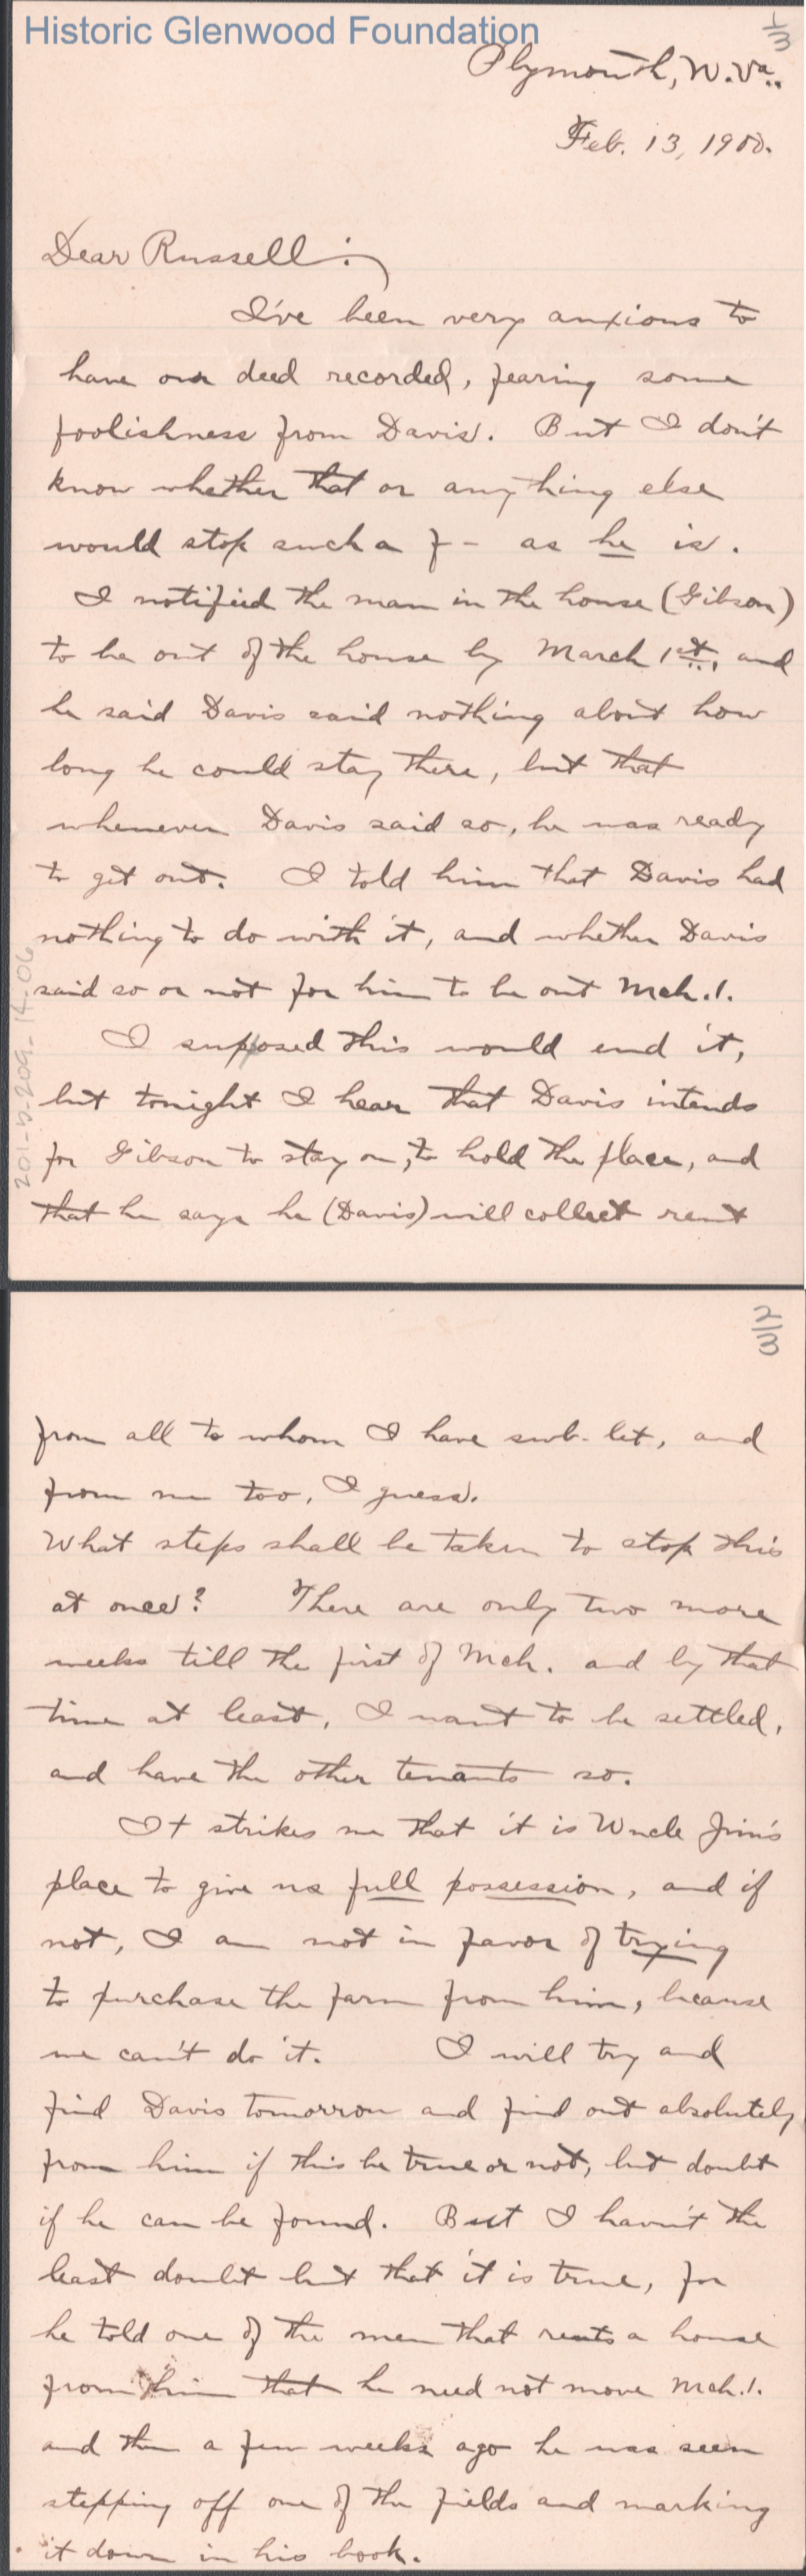 Historic Glenwood Foundation
3/1
Plymouth, W.Va.
Feb. 13, 1900.
Dear Russell:
I've been very anxious to
have our deed recorded, fearing some
foolishness from Davis. But I don't
know whether that or anything else
would stop such a f- as he is.
I notified the man in the house (Gibson)
to be out of the house by March 1st, and
he said Davis said nothing about how
long he could stay there, but that
whenever Davis said so, he was ready
to get out. I told him that Davis had
nothing to do with it, and whether Davis
said so or not for him to be out Mch. 1.
I supposed this would end it,
but tonight I hear that Davis intends
for Gibson to stay on, to hold the place, and
that he says he (Davis) will collect rent
201-5-209-14-06
3/2
from all to whom I have sub-let, and
from me too, I guess.
What steps shall be taken to stop this
at once? There are only two more
weeks till the first of Mch. and by that
time at least, I want to be settled,
and have the other tenants so.
It strikes me that it is Uncle Jim's
place to give us full possession, and if
not, I am not in favor of trying
to purchase the farm from him, because
we can't do it. I will try and
find Davis tomorrow and find out absolutely
from him if this be true or not, but doubt
if he can be found. But I haven't the
least doubt but that it is true, for
he told one of the men that rents a house
from him that he need not move Mch. 1.
and then a few weeks ago he was seen
stepping off one of the fields and marking
it down in his book.